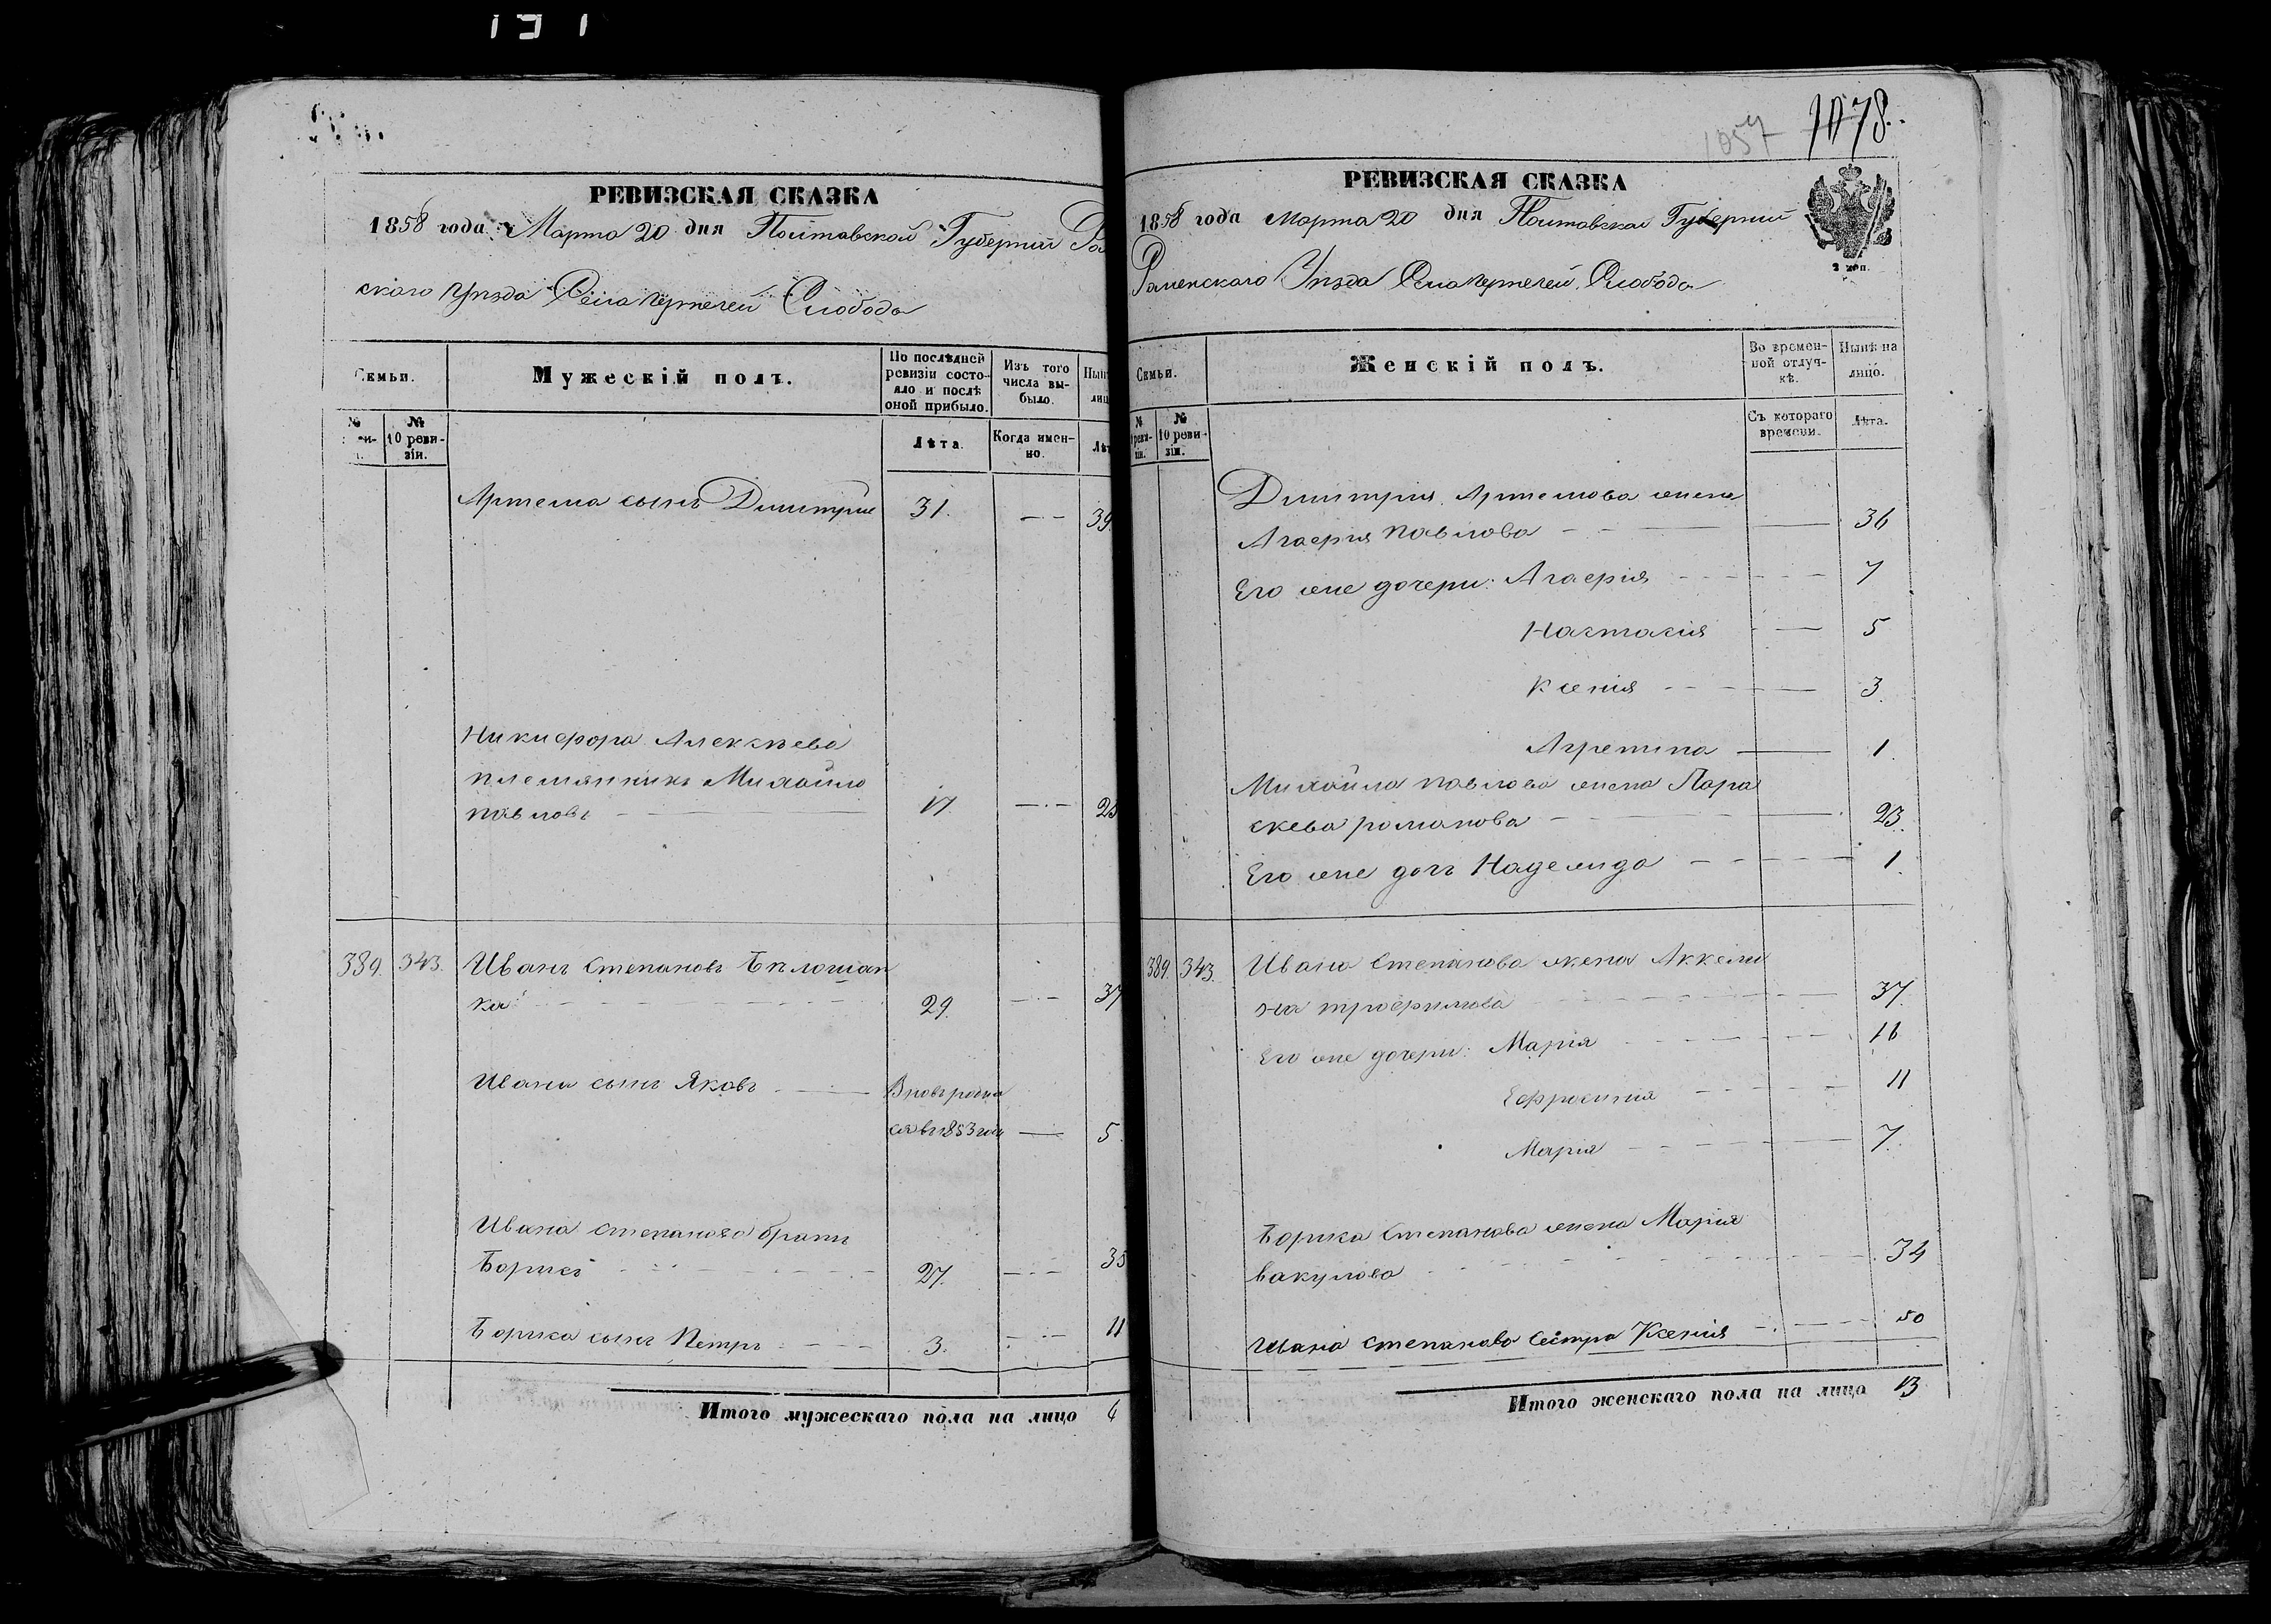 1057 1078.
РЕВИЗСКАЯ СКАЗКА
1858 года Марта 20 дня Полтавской Губернии
ского Уѣзда Села Чертелей Слобода
Семьи.
Мужескій полъ.
По послѣдней ревизіи состояло и послѣ оной прибыло.
Изъ того числа выбыло.
№
№ 10 ревизіи.
Лѣта.
Когда именно.
Артема сынъ Димитрій 31. 39.
Никифора Алексѣева
племянникъ Михайло
Павловъ 17. 25
389. 343. Иванъ Степановъ Бѣлошап
ка 29. 37
Ивана сынъ Яковъ Вновь родил
ся въ 1853 году 5.
Ивана Степанова братъ
Борисъ 27. 35
Бориса сынъ Петръ 3. 11
Итого мужескаго пола на лицо 6
РЕВИЗСКАЯ СКАЗКА
1858 года Марта 20 дня Полтавской Губернии
2 коп.
Роменского Уѣзда Села Чертелей Слобода
Семьи.
Женскій полъ.
Во временной отлучкѣ.
Нынѣ на лицо.
№ ревизіи.
№ 10 ревизіи.
Съ котораго времени.
Лѣта.
Димитрия Артемова жена
Агафия Павлова 36
Его же дочери: Агафія 7
Настасія 5
Ксенія 3.
Агрепина 1.
Михайла Павлова жена Пара
скева Романова 23.
Его же дочь Надежда 1.
389. 343. Ивана Степанова жена Аккели
на Трофимова 37.
Его же дочери: Марія 16
Ефросинія 11
Марія 7.
Бориса Степанова жена Марія
Вакулова 34
Ивана Степанова сестра Ксенія 50
Итого женскаго пола на лицо 13